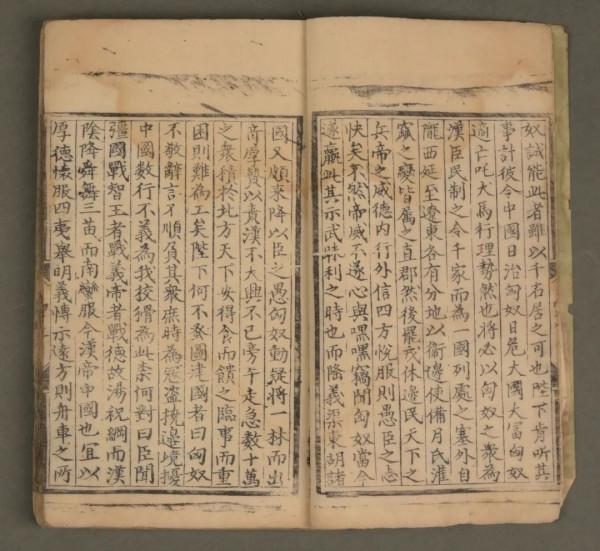 奴誠能此者雖以千名居之可也陛下肯听其
事計彼令中國日治匈奴日危大國大富匈奴
適亡吒犬馬行理勢然也將必以匈奴之衆為
漢臣民制之令千家而為一國列處之塞外自
隴西延至遼東各有分地以衛邊使備月氏灌
窳之變皆屬之直郡然後罷戎休邊民天下之
兵帝之威德内行外信四方悅服則愚臣之志
快矣不然帝威不遂心與嘿嘿竊聞匈奴當今
遂羸此其示武昧利之時也而隆義渠東胡諸
國又頗來降以臣之愚匈奴動疑將一材而出
奇厚贄以責漢不大興不已旁午走急數十萬
之衆積於北方天下安得食而饋之臨事而重
困則難為工矣陛下何不蚤圖建國者曰匈奴
不敬辭言不順負其衆庶時為冦盜撓邊境擾
中國數行不義為我狡猾為此柰何對曰臣聞
彊國戰智王者戰義帝者戰德故湯祝網而漢
陰降舜舞三苗而南蠻服今漢帝中國也宜以
厚德懷服四夷舉明義愽示遠方則舟車之所